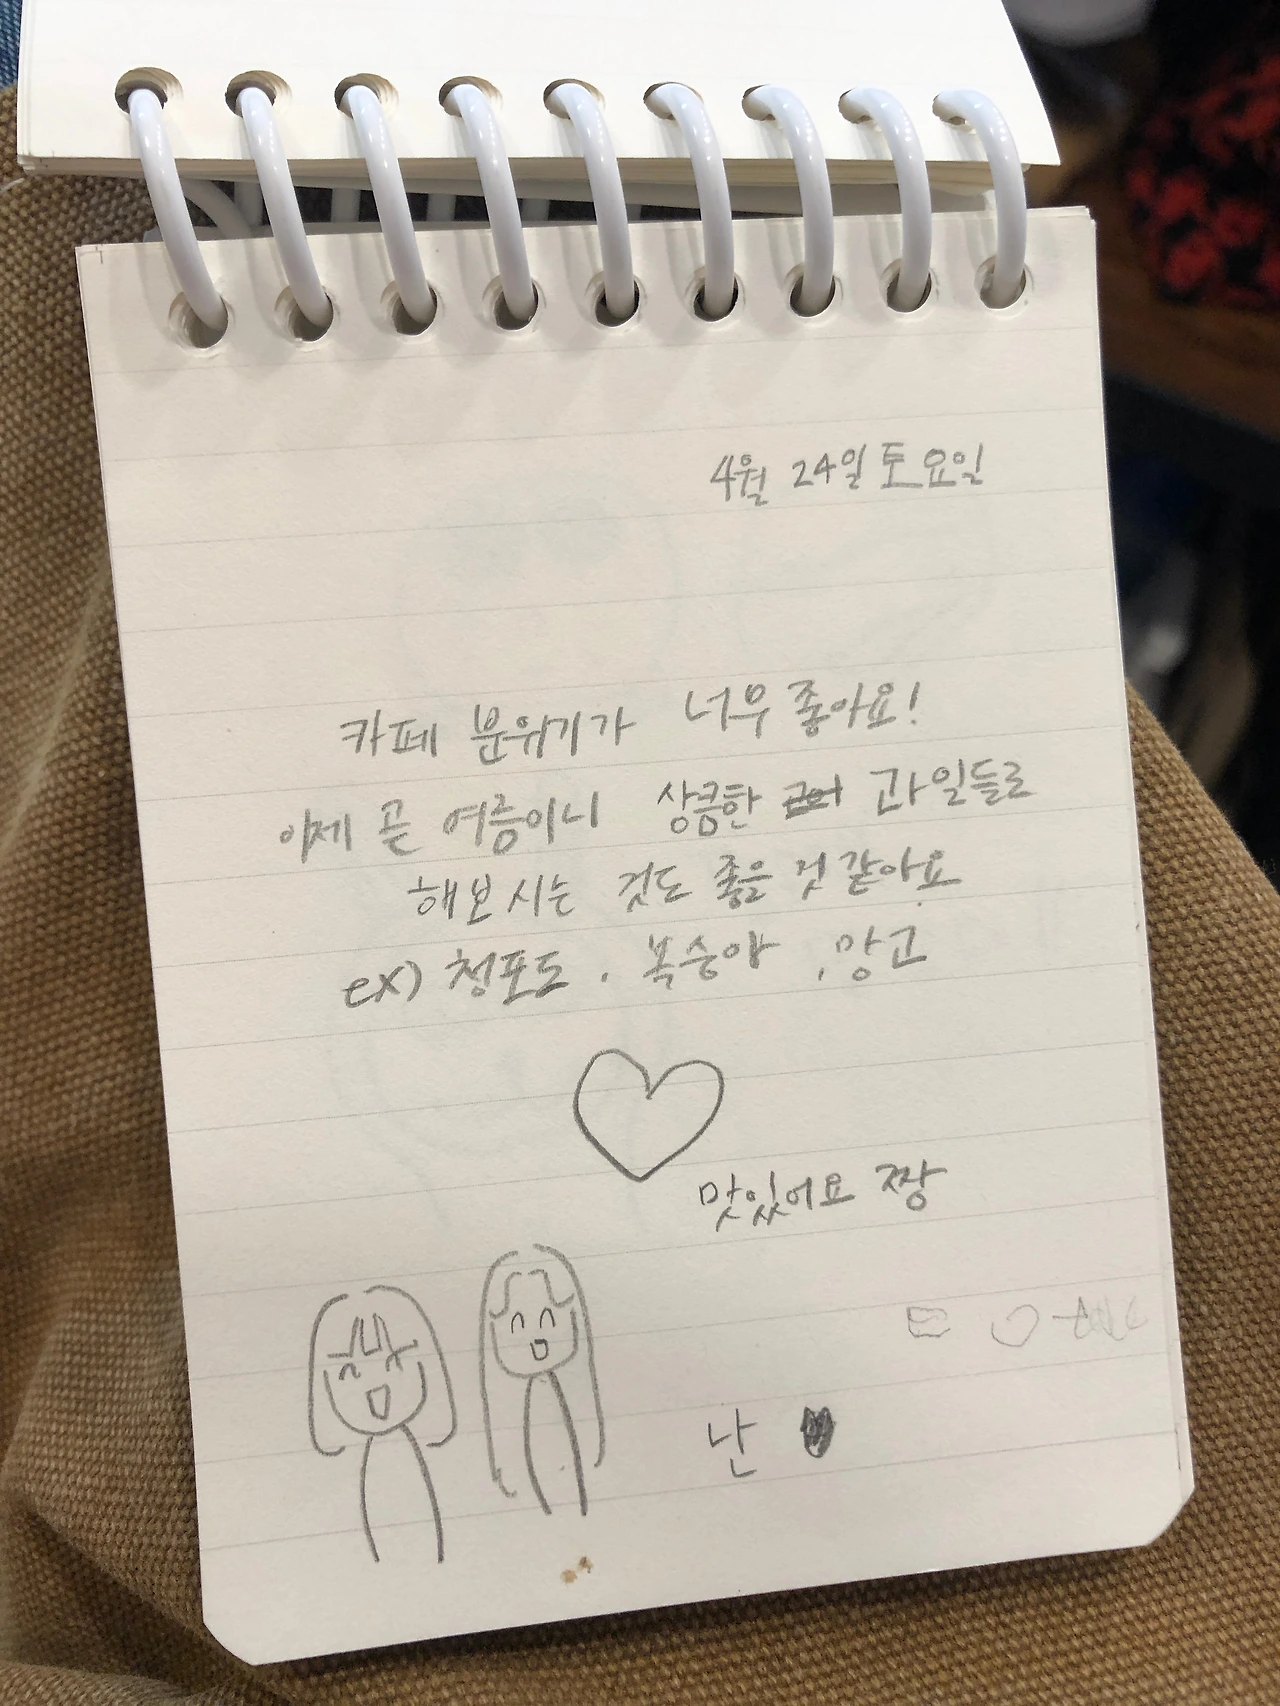 4월 24일 토요일
카페 분위기가 너무 좋아요!
이제 곧 여름이니 상큼한 과일들로
해보시는 것도 좋을 것 같아요
ex) 청포도, 복숭아, 망고
맛있어요 짱
난